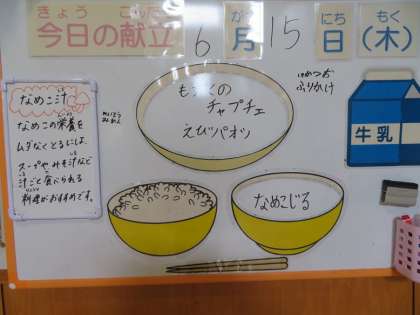 きょう こんだて
今日の献立
がつ にち もく
6月15日(木)
なめこ汁
なめこの栄養を
ムダなくとるには、
スープやみそ汁など
汁ごと食べられる
料理がおすすめです。
チャプチェ
えびパオツ
ふりかけ
牛乳
なめこじる